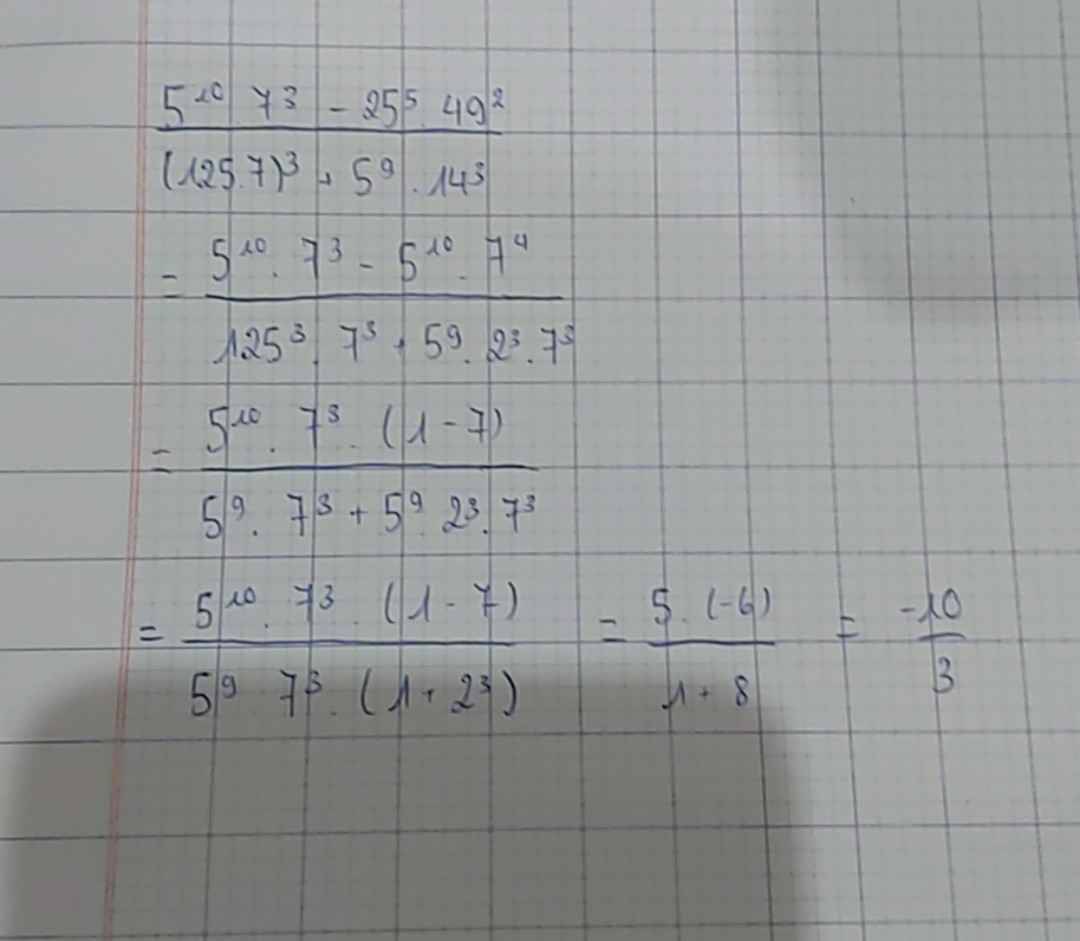 5¹⁰ 7³ - 25⁵. 49²
(125.7)³ + 5⁹ . 14³
= 5¹⁰. 7³ - 5¹⁰. 7⁴
125³. 7³ + 5⁹. 2³. 7³
= 5¹⁰. 7³. (1 - 7)
5⁹. 7³ + 5⁹. 2³. 7³
= 5¹⁰. 7³. (1 - 7) = 5. (-6) = -10
5⁹ 7³. (1 + 2³) 1 + 8 3